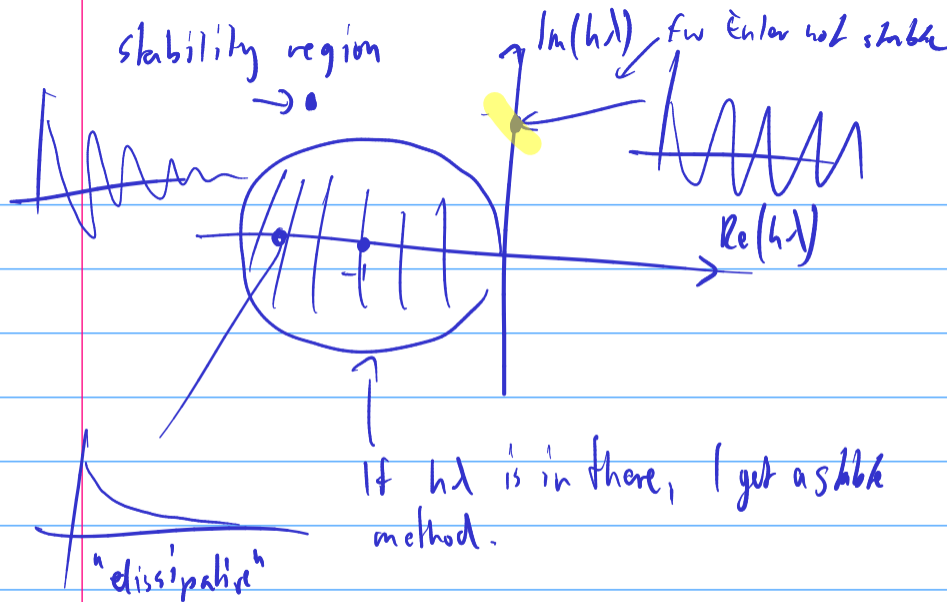 stability region
Im(hλ)
Fw Euler not stable
Re(hλ)
-1
If hλ is in there, I get a stable
method.
"dissipative"